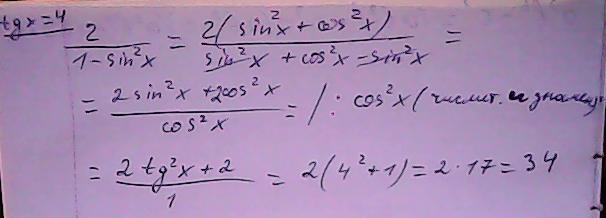 tg x = 4
2 / (1 - sin²x) = 2(sin²x + cos²x) / (sin²x + cos²x - sin²x) =
= (2 sin²x + 2cos²x) / cos²x = / : cos²x (числит. и знамен.)
= (2 tg²x + 2) / 1 = 2(4² + 1) = 2 · 17 = 34